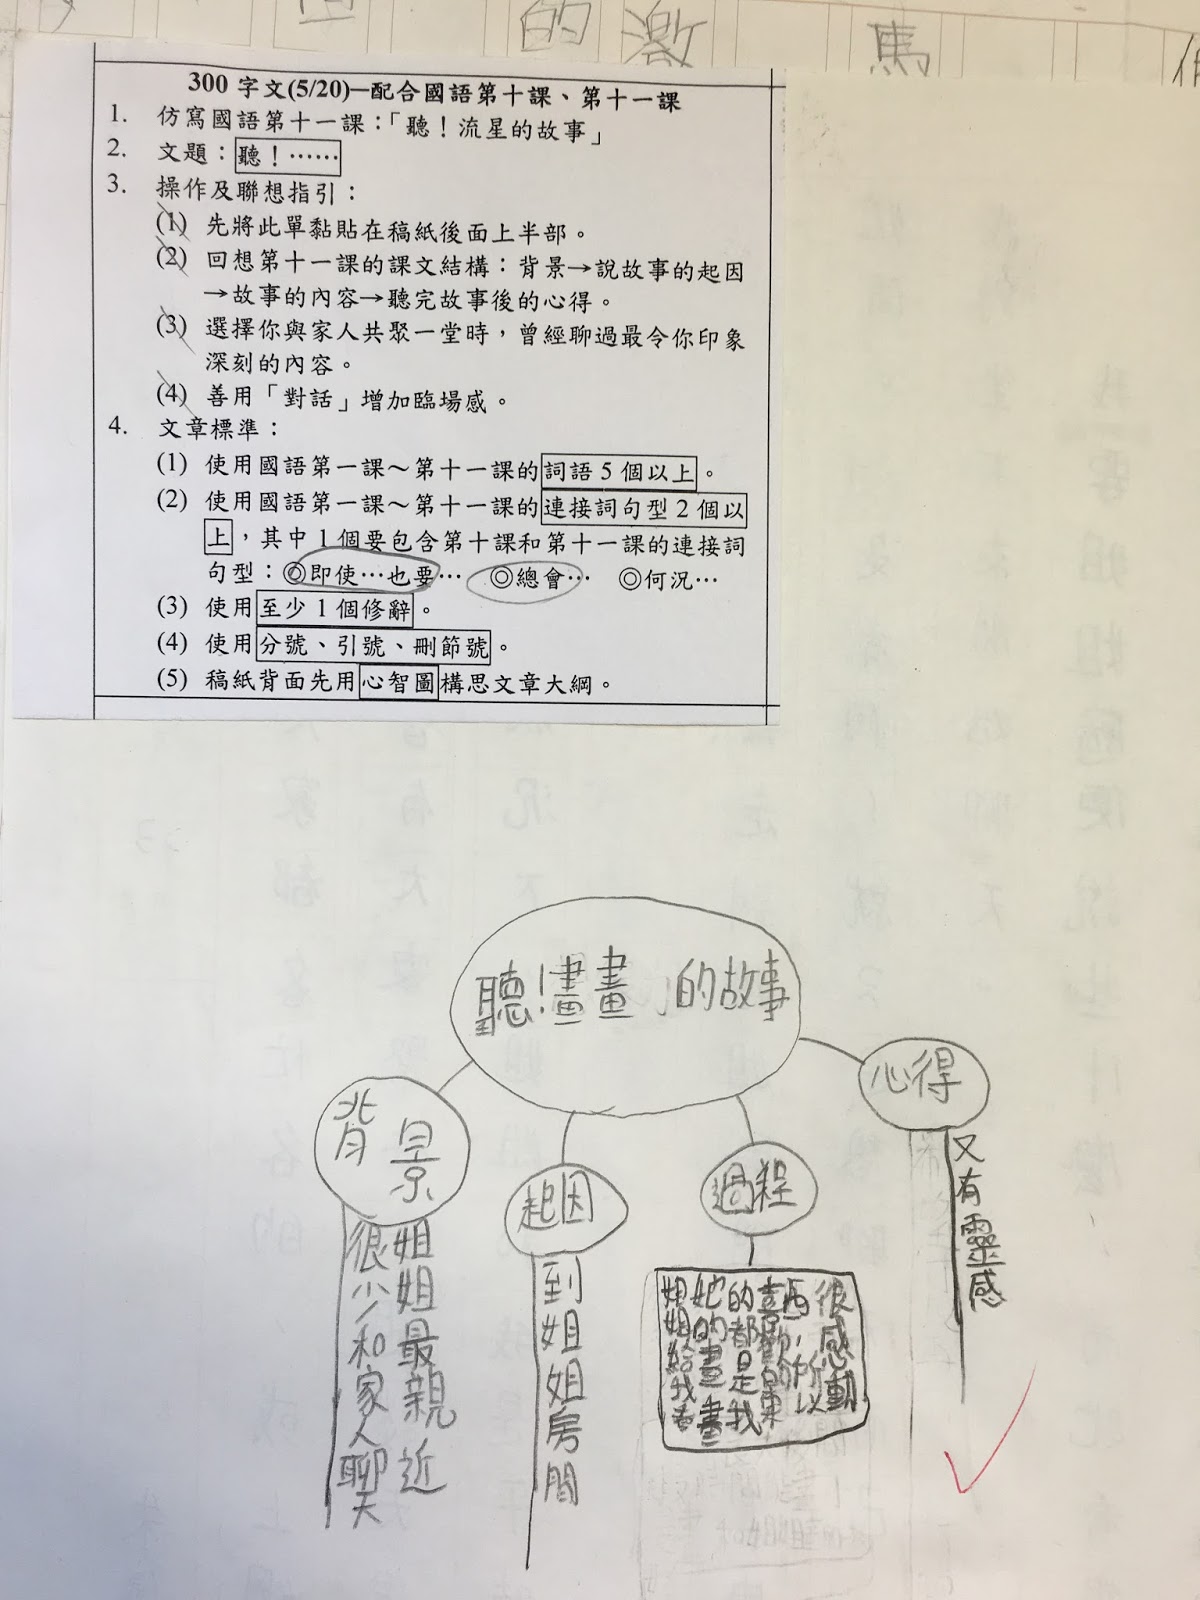 的激 馬
300字文(5/20)—配合國語第十課、第十一課
1. 仿寫國語第十一課：「聽！流星的故事」
2. 文題：聽！⋯⋯
3. 操作及聯想指引：
(1) 先將此單黏貼在稿紙後面上半部。
(2) 回想第十一課的課文結構：背景→說故事的起因
→故事的內容→聽完故事後的心得。
(3) 選擇你與家人共聚一堂時，曾經聊過最令你印象
深刻的內容。
(4) 善用「對話」增加臨場感。
4. 文章標準：
(1) 使用國語第一課～第十一課的詞語5個以上。
(2) 使用國語第一課～第十一課的連接詞句型2個以
上，其中1個要包含第十課和第十一課的連接詞
句型：◎即使⋯也要⋯ ◎總會⋯ ◎何況⋯
(3) 使用至少1個修辭。
(4) 使用分號、引號、刪節號。
(5) 稿紙背面先用心智圖構思文章大綱。
聽！畫畫的故事
背景
姐姐最親近
很少和家人聊天
起因
到姐姐房間
過程
很感動
所以
喜歡的
的都是我
她的畫畫
姐姐給我看
心得
又有靈感